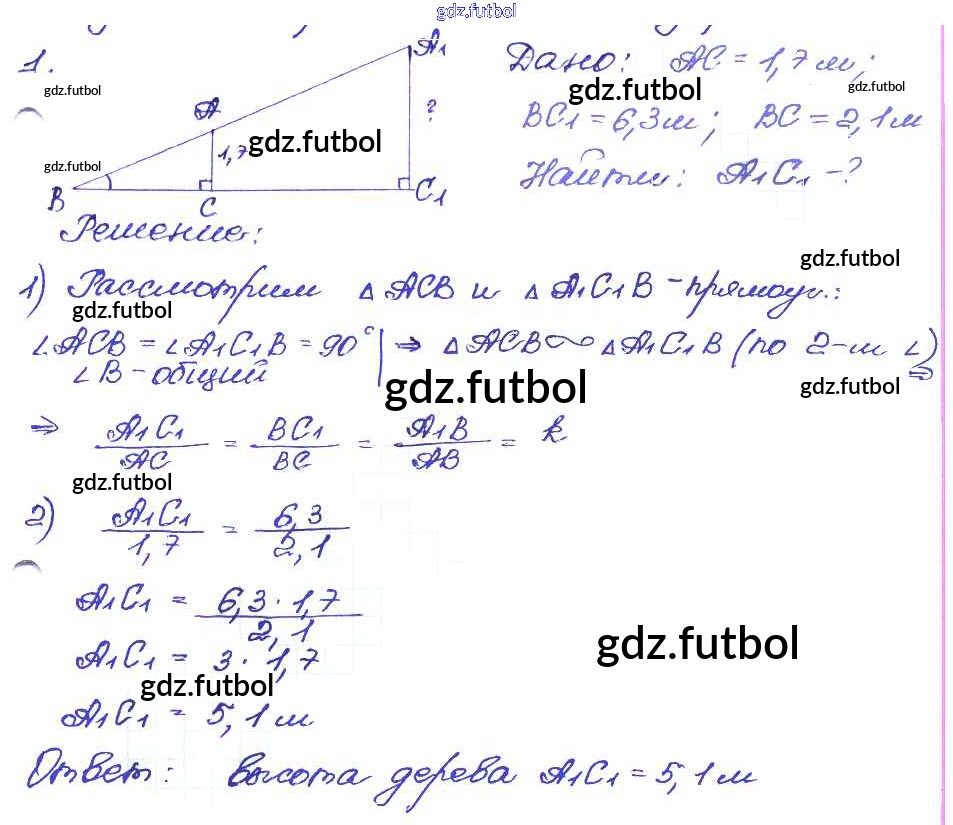 gdz.futbol
1.
gdz.futbol
A₁
A
?
1,7
gdz.futbol
gdz.futbol
B
C
C₁
Дано: AC = 1,7 м;
gdz.futbol
gdz.futbol
BC₁ = 6,3 м; BC = 2,1 м
Найти: A₁C₁ - ?
Решение:
gdz.futbol
1) Рассмотрим △ ACB и △ A₁C₁B - прямоуг.:
gdz.futbol
∠ACB = ∠A₁C₁B = 90° | ⇒ △ ACB ∾ △ A₁C₁B (по 2-м ∠) ⇒
∠B - общий
gdz.futbol
gdz.futbol
⇒ A₁C₁/AC = BC₁/BC = A₁B/AB = k
gdz.futbol
2) A₁C₁/1,7 = 6,3/2,1
A₁C₁ = 6,3 · 1,7/2,1
gdz.futbol
A₁C₁ = 3 · 1,7
gdz.futbol
A₁C₁ = 5,1 м
Ответ: высота дерева A₁C₁ = 5,1 м